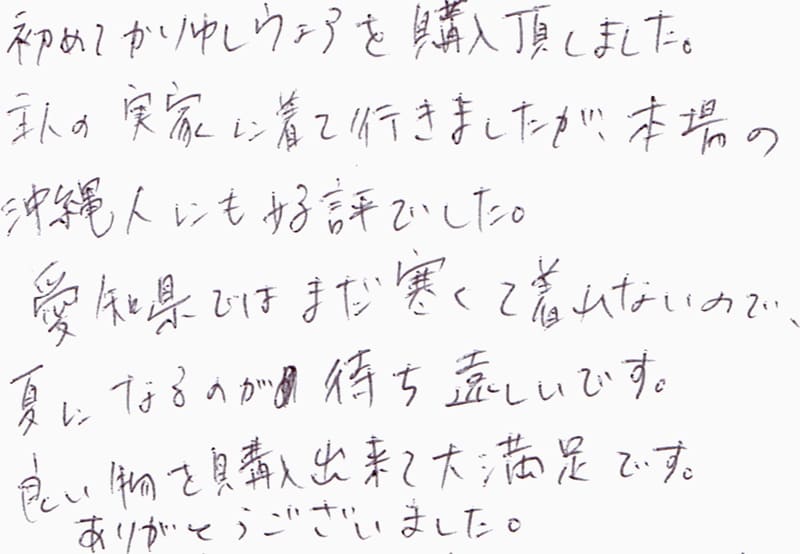 初めてかりゆしウェアを購入頂しました。
主人の実家に着て行きましたが、本場の
沖縄人にも好評でした。
愛知県ではまだ寒くて着れないので、
夏になるのが待ち遠しいです。
良い物を購入出来て大満足です。
ありがとうございました。